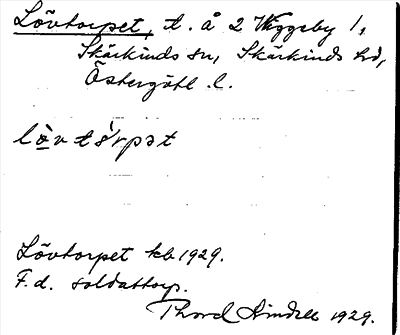 Lövtorpet, t. å 2 Viggeby 1,
Skärkinds sn, Skärkinds hd,
Östergötl. l.
lövtórpət
Lövtorpet kb 1929.
F. d. soldattorp.
Thord Lindell 1929.